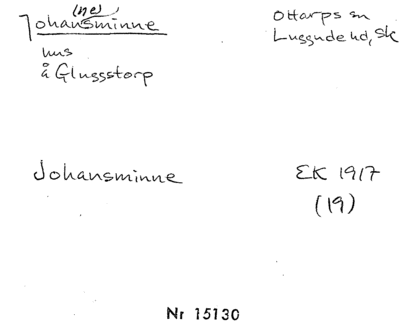 (ne)
Johansminne
Ottarps sn
Luggude hd, Sk
hus
å Gluggstorp
Johansminne
EK 1917
(19)
Nr 15130